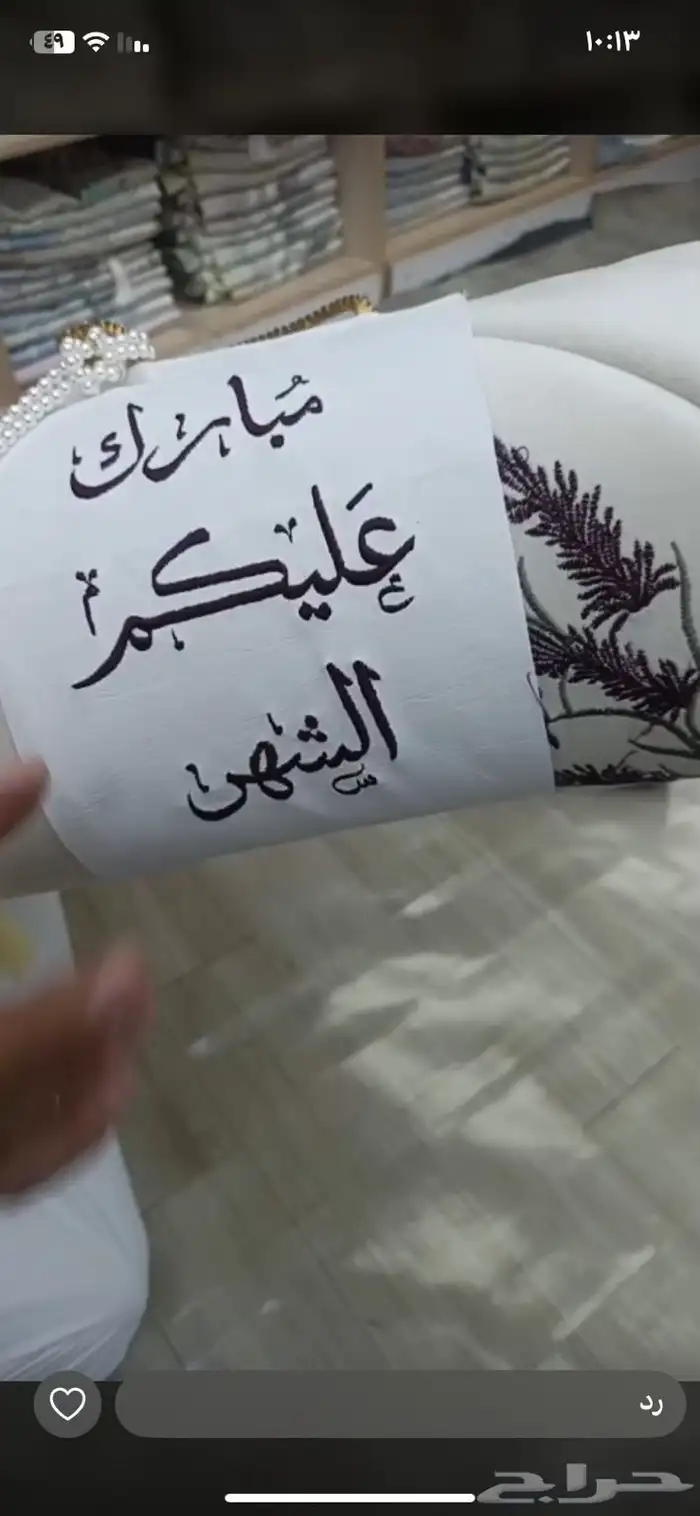 ٤٩ ١٠:١٣
مُبارك
عَليكم
الشهر
رد
حراج